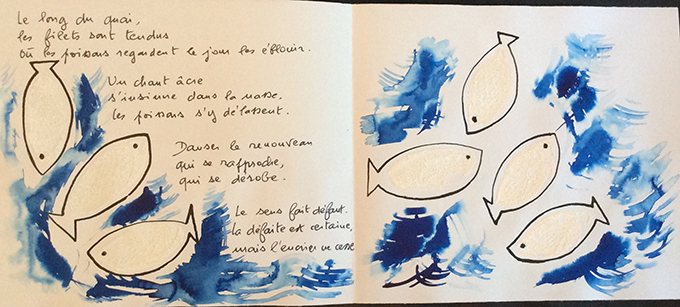 Le long du quai,
les filets sont tendus
où les poissons regardent le jour les éblouir.
Un chant âcre
s'insinue dans la nasse.
Les poissons s'y délassent.
Danser le renouveau
qui se rapproche,
qui se dérobe.
Le sens fait défaut.
La défaite est certaine,
mais l'encrier ne cesse